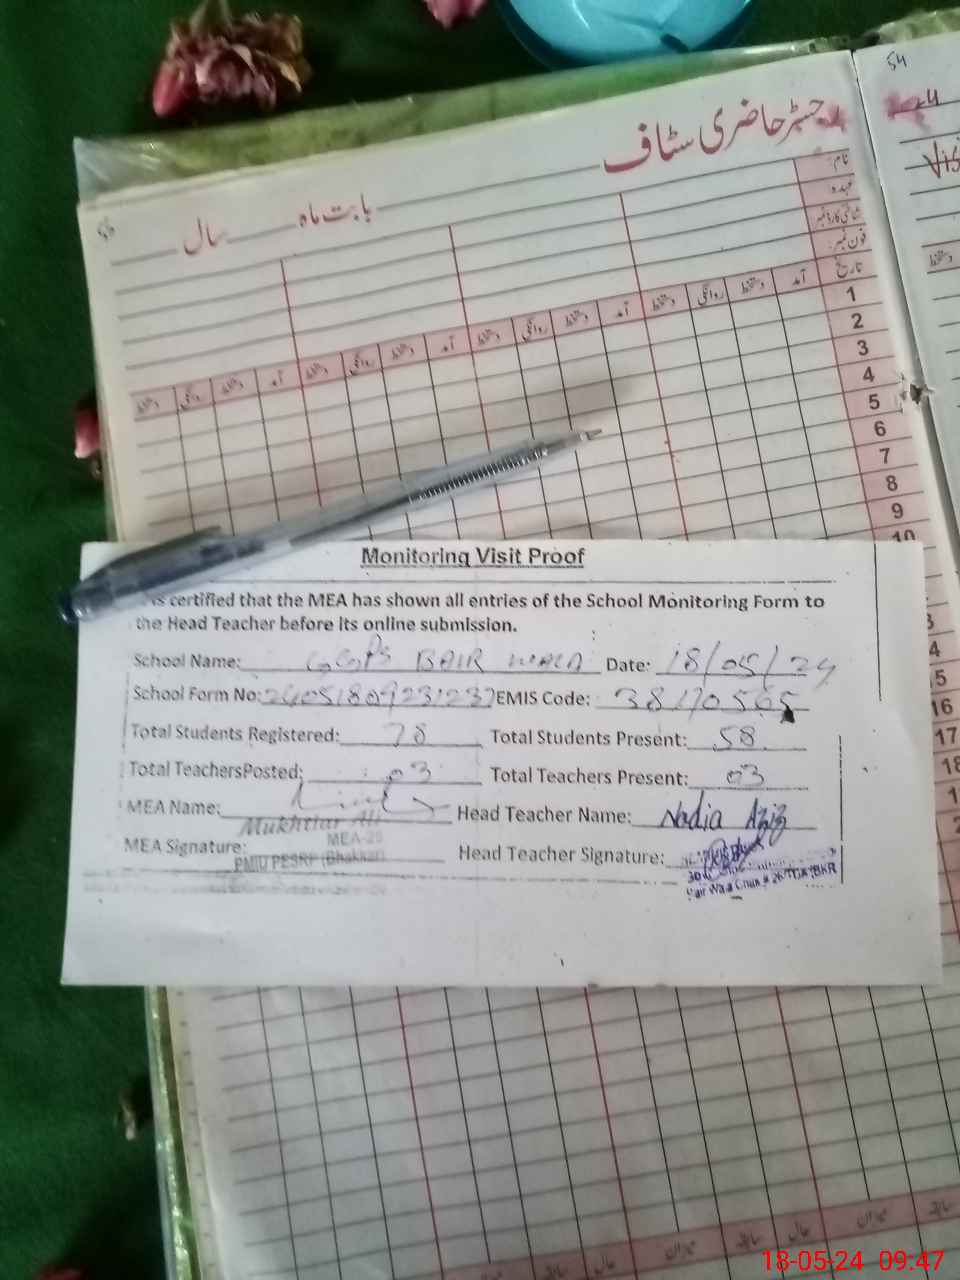 54
رجسٹر حاضری سٹاف
بابت ماہ سال
نام:
عہدہ
شناختی کارڈ نمبر
فون نمبر:
تاریخ آمد دستخط روانگی دستخط آمد دستخط روانگی دستخط آمد دستخط روانگی دستخط آمد دستخط روانگی دستخط
1
2
3
4
5
6
7
8
9
10
Monitoring Visit Proof
is certified that the MEA has shown all entries of the School Monitoring Form to
the Head Teacher before its online submission.
School Name: GGPS BAIR WALA Date: 18/05/24
School Form No: 24051809231237 EMIS Code: 38170565
Total Students Registered: 78 Total Students Present: 58
Total TeachersPosted: 03 Total Teachers Present: 03
MEA Name: Head Teacher Name: Nadia Aziz
Mukhtiar Ali
MEA Signature: MEA-25 Head Teacher Signature:
PMIU PESRP (Bhakkar)
16
17
18
میزان سابقہ حال میزان سابقہ حال
18-05-24 09:47